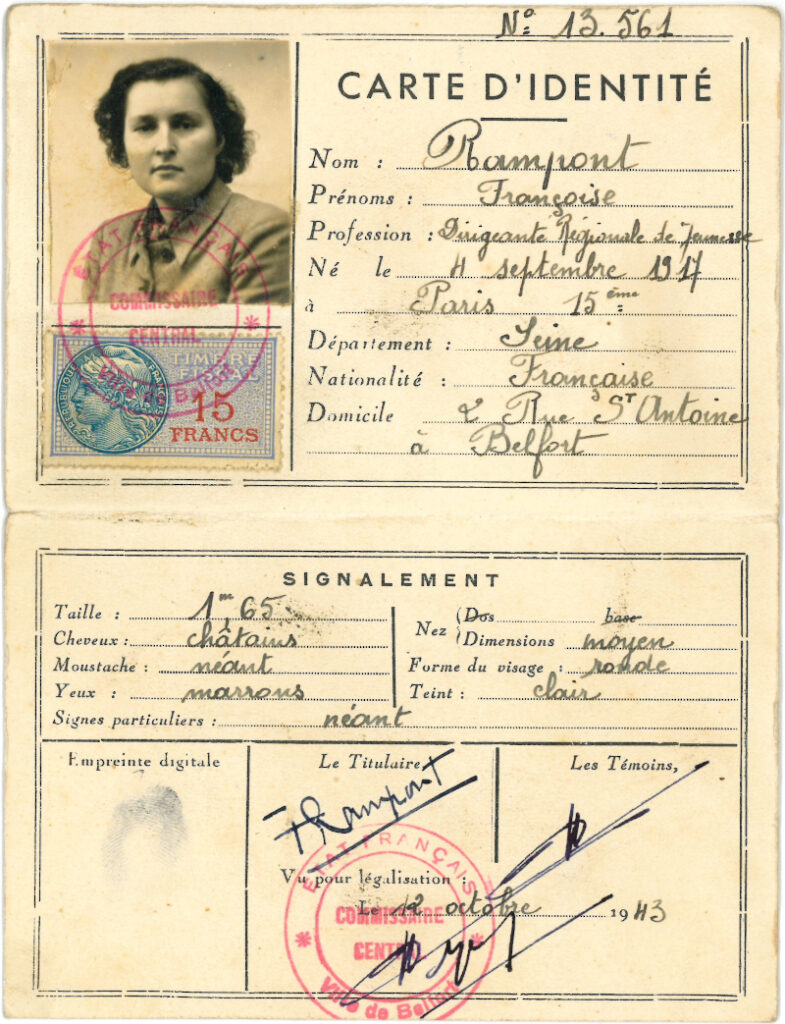 Nº 13.561
CARTE D'IDENTITÉ
Nom : Rampont
Prénoms : Françoise
Profession : Dirigeante Régionale de Jeunesse
Né le 4 septembre 1917
à Paris 15ème
Département : Seine
Nationalité : Française
Domicile 2 Rue St Antoine
à Belfort
ÉTAT FRANÇAIS
COMMISSAIRE
CENTRAL
Ville de Belfort
RÉPUBLIQUE FRANÇAISE
TIMBRE
FISCAL
15
FRANCS
SIGNALEMENT
Taille : 1m,65
Cheveux : châtains
Moustache : néant
Yeux : marrons
Signes particuliers : néant
Nez (Dos base
(Dimensions moyen
Forme du visage : ronde
Teint : clair
Empreinte digitale
Le Titulaire,
Les Témoins,
FRampont
Vu pour légalisation :
Le 12 octobre 1943
ÉTAT FRANÇAIS
COMMISSAIRE
CENTRAL
Ville de Belfort